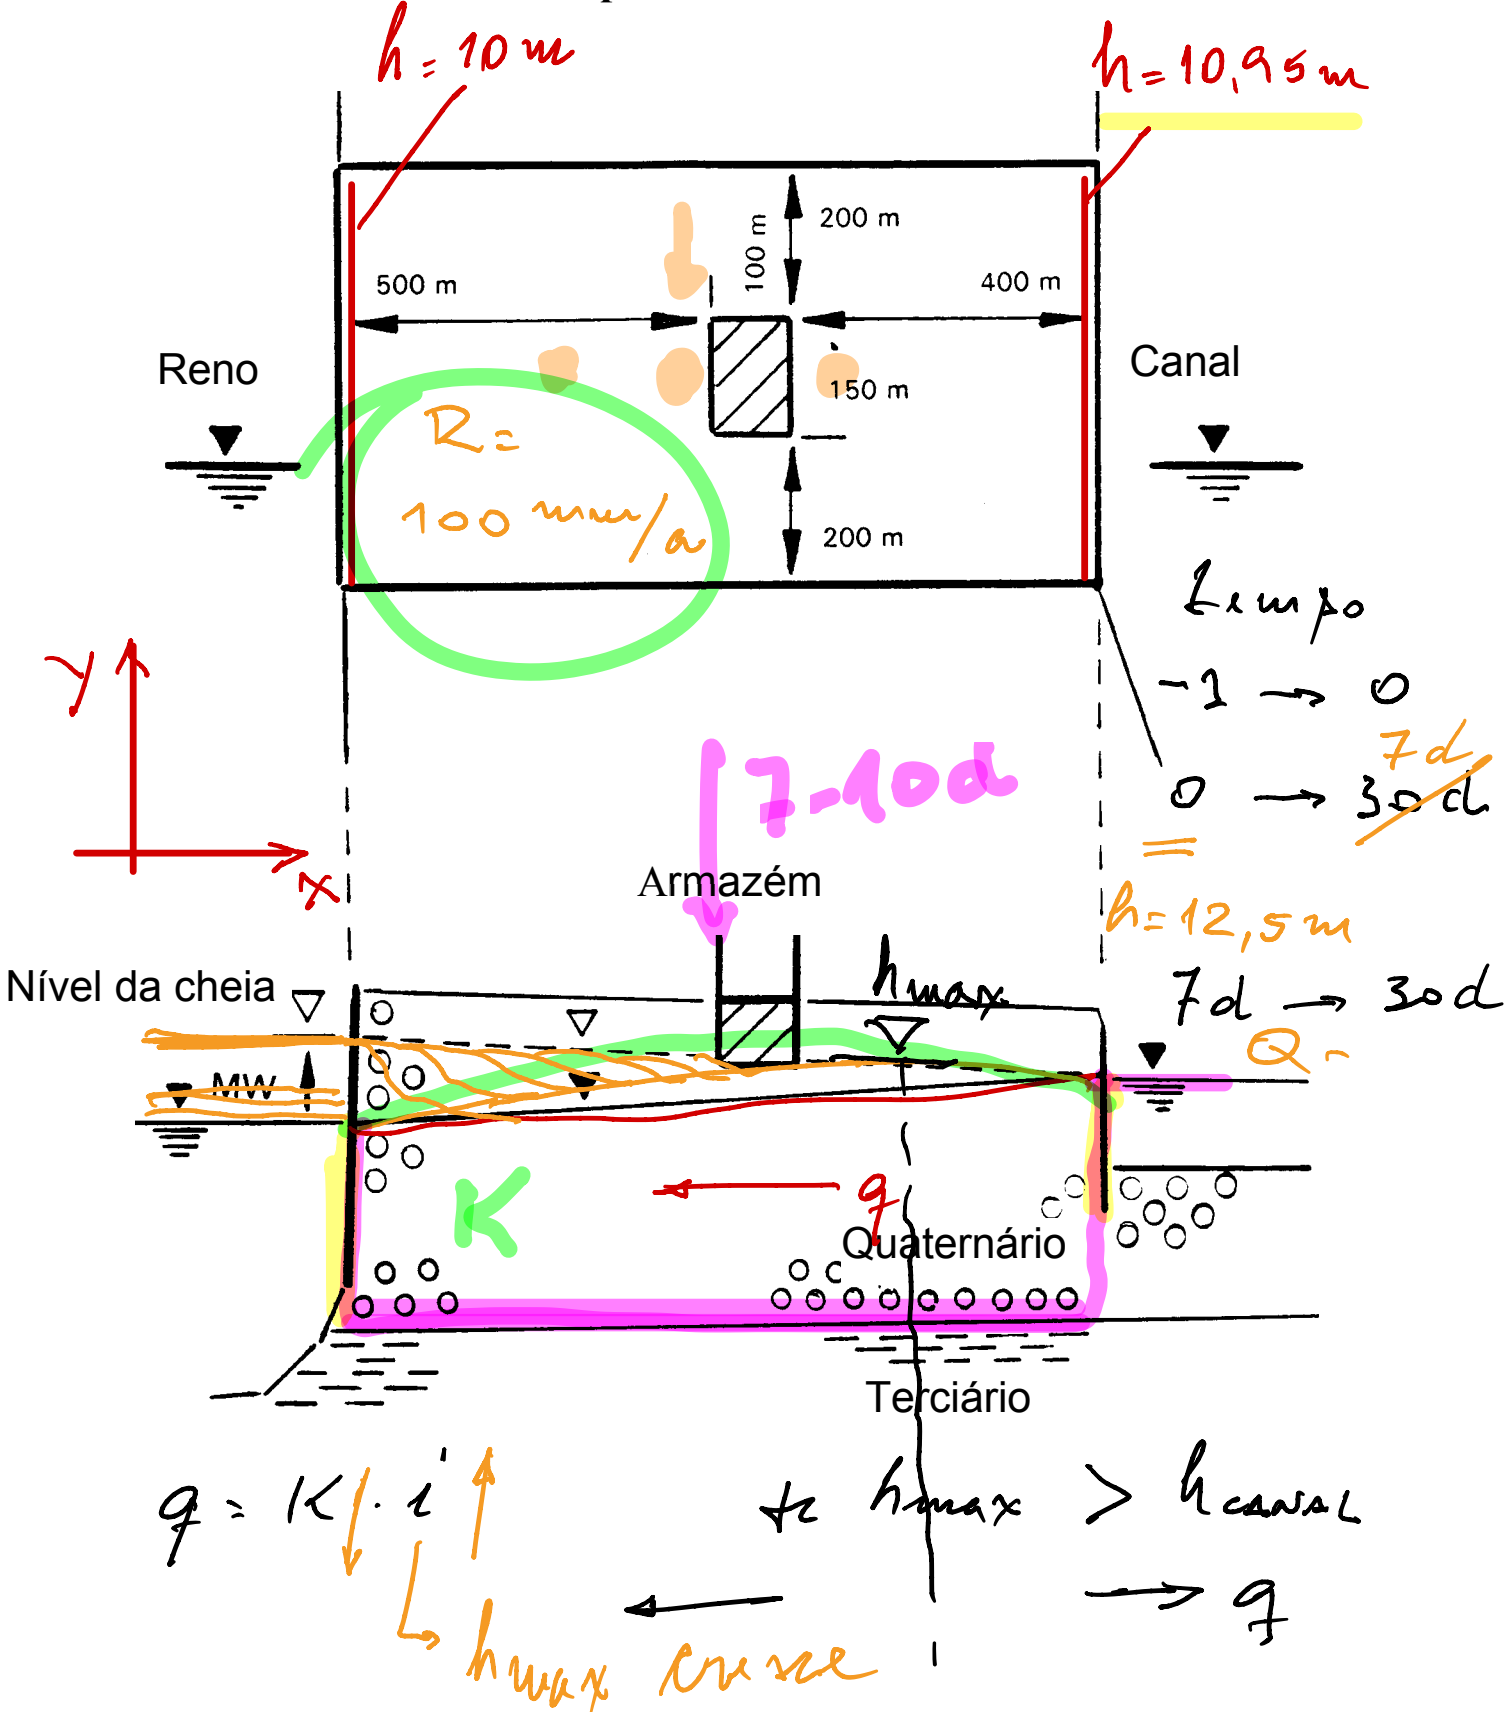 h = 10 m
h = 10,95 m
200 m
100 m
500 m
400 m
Reno
Canal
150 m
R =
100 mm/a
200 m
tempo
-1 → 0
y
7 d
7-10d
0 → 30 d
x
Armazém
h = 12,5 m
Nível da cheia
hmax
7d → 30d
Q -
MW
K
q
Quaternário
Terciário
q = K · i
hmax > hCANAL
q
hmax cresce